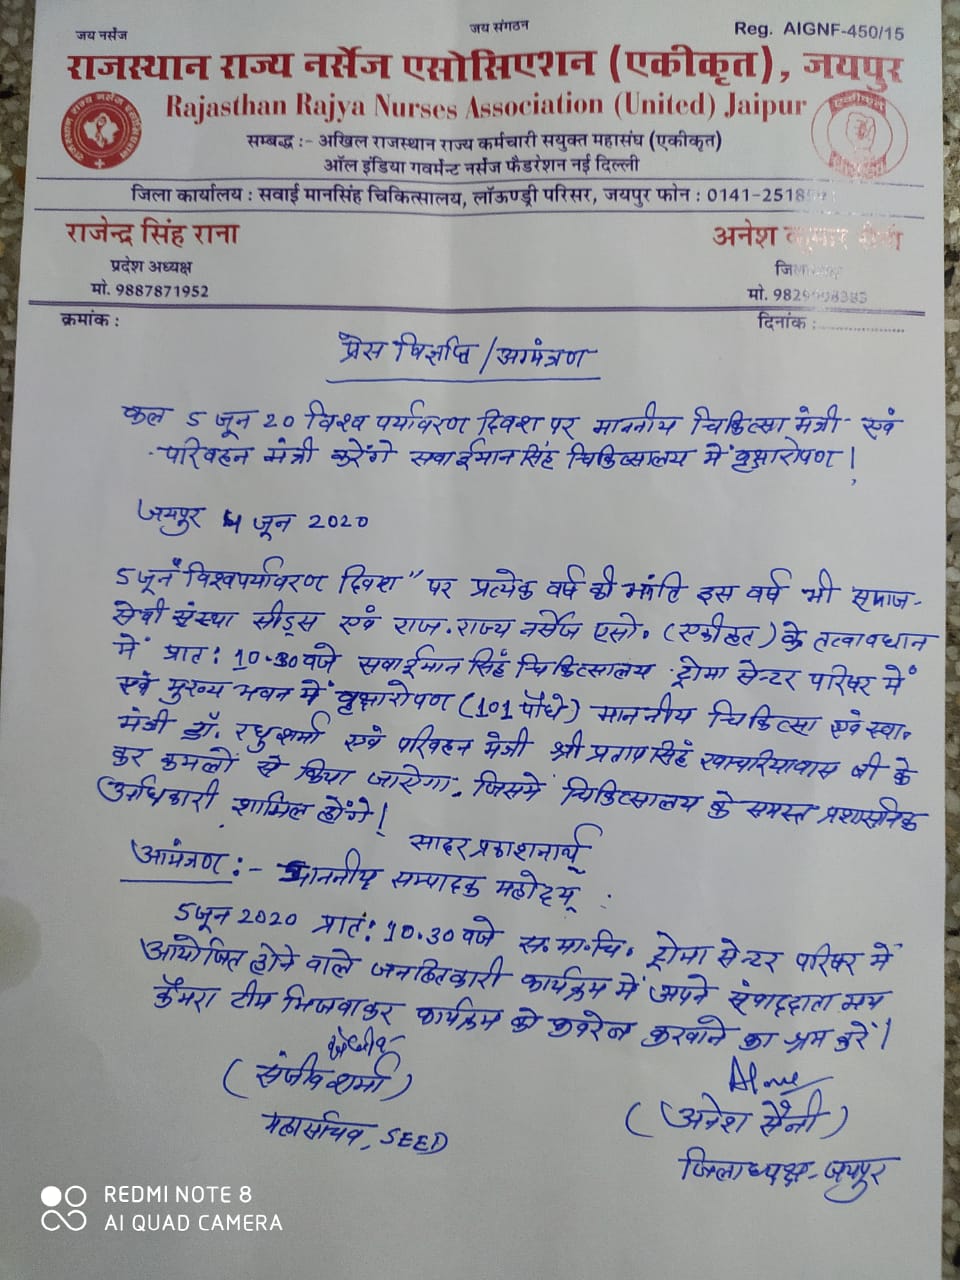 जय नर्सेज
जय संगठन
Reg. AIGNF-450/15
राजस्थान राज्य नर्सेज एसोसिएशन (एकीकृत), जयपुर
Rajasthan Rajya Nurses Association (United) Jaipur
सम्बद्ध :- अखिल राजस्थान राज्य कर्मचारी सयुक्त महासंघ (एकीकृत)
ऑल इंडिया गवर्मेन्ट नर्सेज फैडरेशन नई दिल्ली
जिला कार्यालय : सवाई मानसिंह चिकित्सालय, लॉऊण्ड्री परिसर, जयपुर फोन : 0141-2518
राजेन्द्र सिंह राना
प्रदेश अध्यक्ष
मो. 9887871952
अनेश कुमार सैनी
मो. 9829
क्रमांक :
दिनांक :
प्रेस विज्ञप्ति / आमंत्रण
कल 5 जून 20 विश्व पर्यावरण दिवश पर माननीय चिकित्सा मंत्री एवं
परिवहन मंत्री करेंगे सवाईमानसिंह चिकित्सालय में वृक्षारोपण !
जयपुर 4 जून 2020
5 जून "विश्वपर्यावरण दिवश" पर प्रत्येक वर्ष की भांति इस वर्ष भी समाज-
सेवी संस्था सीड्स एवं राज. राज्य नर्सेज एसो. (एकीकृत) के तत्वावधान
में प्रात: 10.30 वजे सवाईमानसिंह चिकित्सालय ट्रोमा सेन्टर परिषर में
एवं मुख्य भवन में वृक्षारोपण (101 पौधे) माननीय चिकित्सा एवं स्वा.
मंत्री डॉ. रघु शर्मा एवं परिवहन मंत्री श्री प्रताप सिंह खाचरियावास जी के
कर कमलों से किया जाऐगा. जिसमें चिकित्सालय के समस्त प्रशासनिक
अधिकारी शामिल होंगे !
सादर प्रकाशनार्थ
आमंत्रण :- माननीय सम्पादक महोदय
5 जून 2020 प्रात: 10.30 वजे स.मा.चि. ट्रोमा सेन्टर परिषर में
आयोजित होने वाले जनहितकारी कार्यक्रम में अपने संवाददाता मय
कैमरा टीम भिजवाकर कार्यक्रम को कवरेज करवाने का श्रम करें।
(संजीव शर्मा)
महासचिव, SEED
(अनेश सैनी)
जिलाध्यक्ष-जयपुर
REDMI NOTE 8
AI QUAD CAMERA